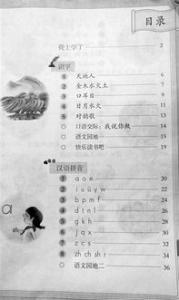 目录
我上学了 2
识字
1 天地人 6
2 金木水火土 7
3 口耳目 9
4 日月水火 11
5 对韵歌 13
口语交际：我说你做 14
语文园地一 15
快乐读书吧 19
汉语拼音
1 ɑ o e 20
2 i u ü y w 22
3 b p m f 24
4 d t n l 26
5 g k h 28
6 j q x 30
7 z c s 32
8 zh ch sh r 34
语文园地二 36
ɑ